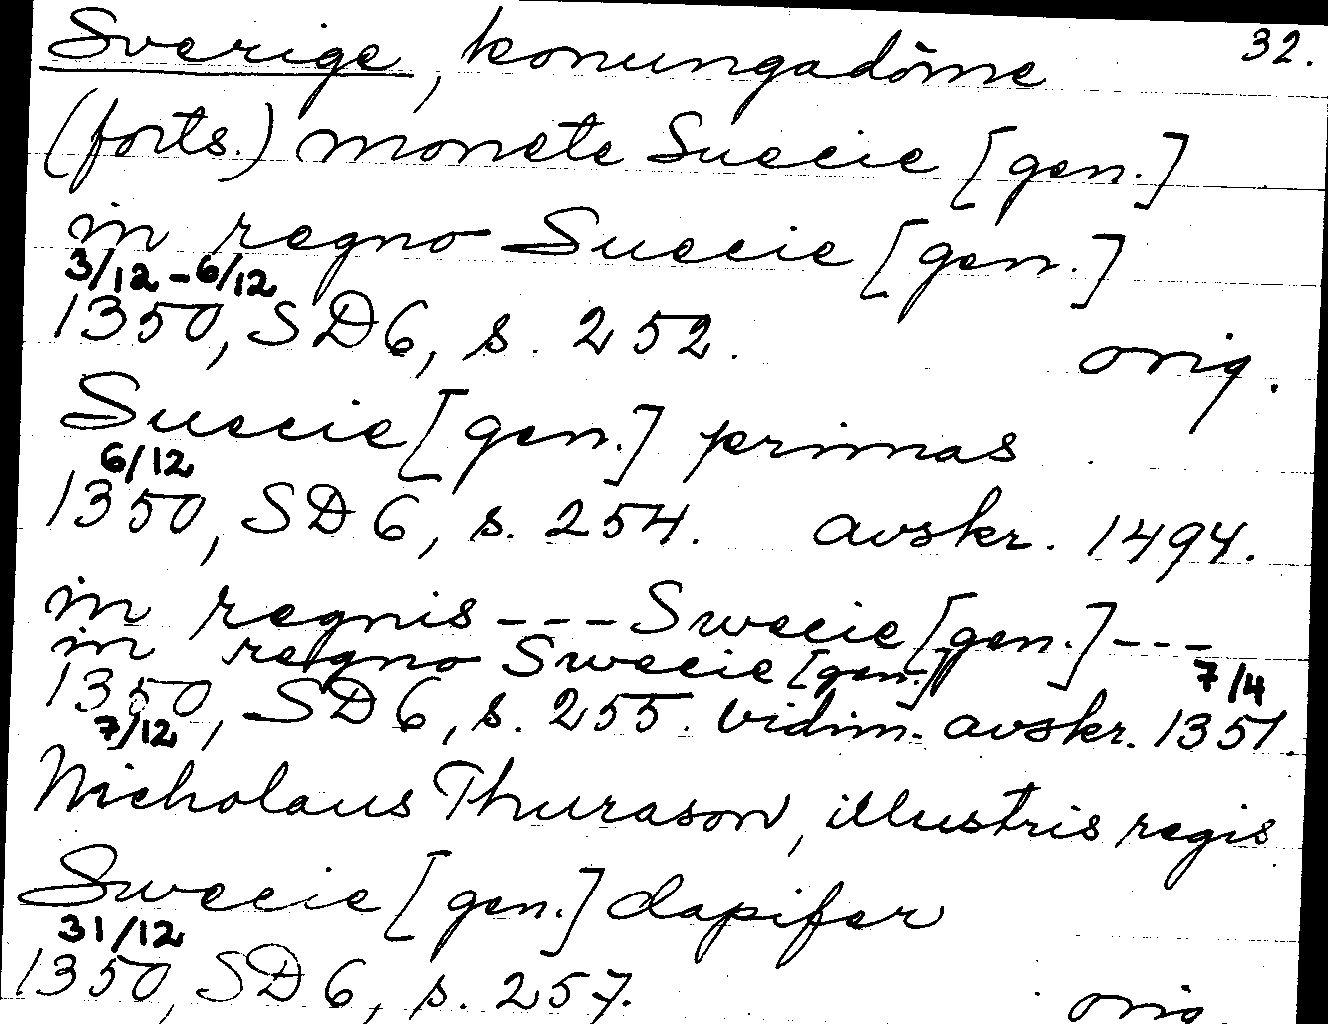 Sverige, konungadöme 32.
(forts.) monete Suecie [gen.]
in regno Suecie [gen.]
3/12-6/12
1350, SD6, s. 252. orig.
Suecie [gen.] primas
6/12
1350, SD6, s. 254. avskr. 1494.
in regnis --- Swecie [gen.] ---
in regno Swecie [gen.] 7/4
1350, SD6, s. 255. vidim. avskr. 1351.
7/12
Nicholaus Thurason, illustris regis
Swecie [gen.] dapifer
31/12
1350, SD6, s. 257. orig.